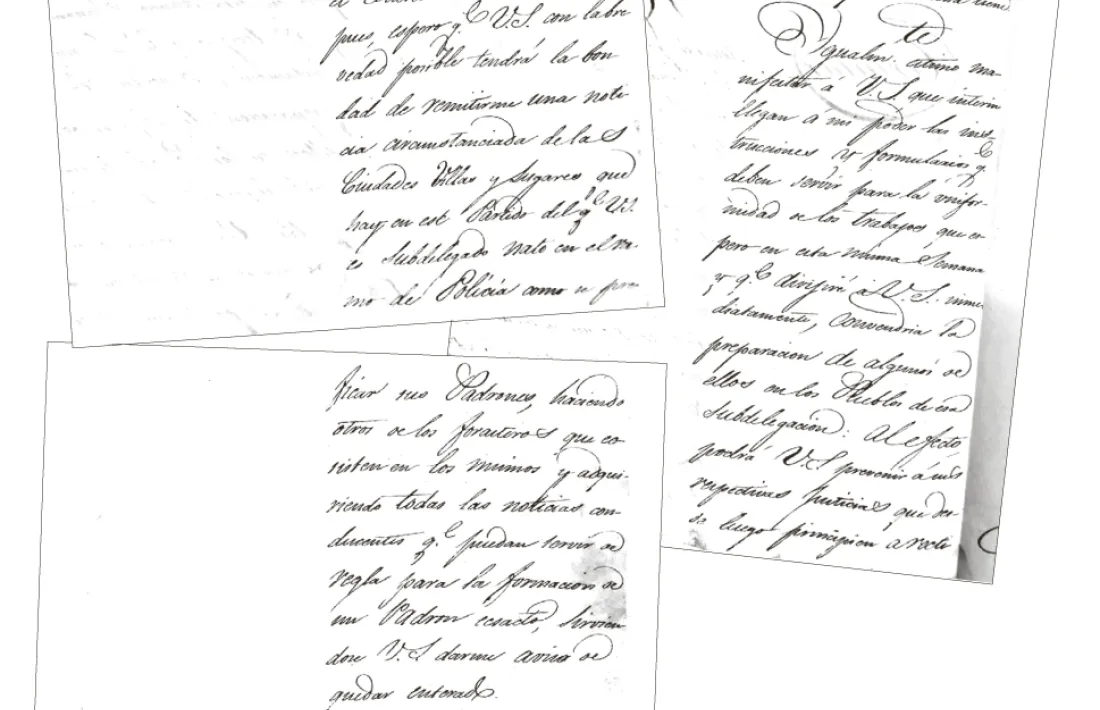 pues, espero q.e V.S. con la bre
vedad posible tendrá la bon
dad de remitirme una noti
cia circunstanciada de las
Ciudades Villas y Lugares que
hay en ese Partido del q.e V.S.
es Subdelegado nato en el ra
mo de Policía como se
Igualm.te atimo ma
nifestar á V.S. que interin
llegan a mi poder las ins-
trucciones y formularios q.e
deben servir para la unifor-
midad de los trabajos que es
pero en esta misma semana
y q.e divijiré á V.S. inme
diatamente, convendria la
preparacion de algunos de
ellos en los Pueblos de esa
Subdelegación: Al efecto,
podrá V.S prevenir á
respectivas Justicias que des-
de luego principien a recti
ficar sus Padrones, haciendo
otros de los forasteros que ec-
sisten en los mismos y adqui-
riendo todas las noticias con-
ducentes q.e puedan servir de
regla para la formacion de
un Padron ecsacto, sirvien
dose V.S darme aviso de
quedar enterado.